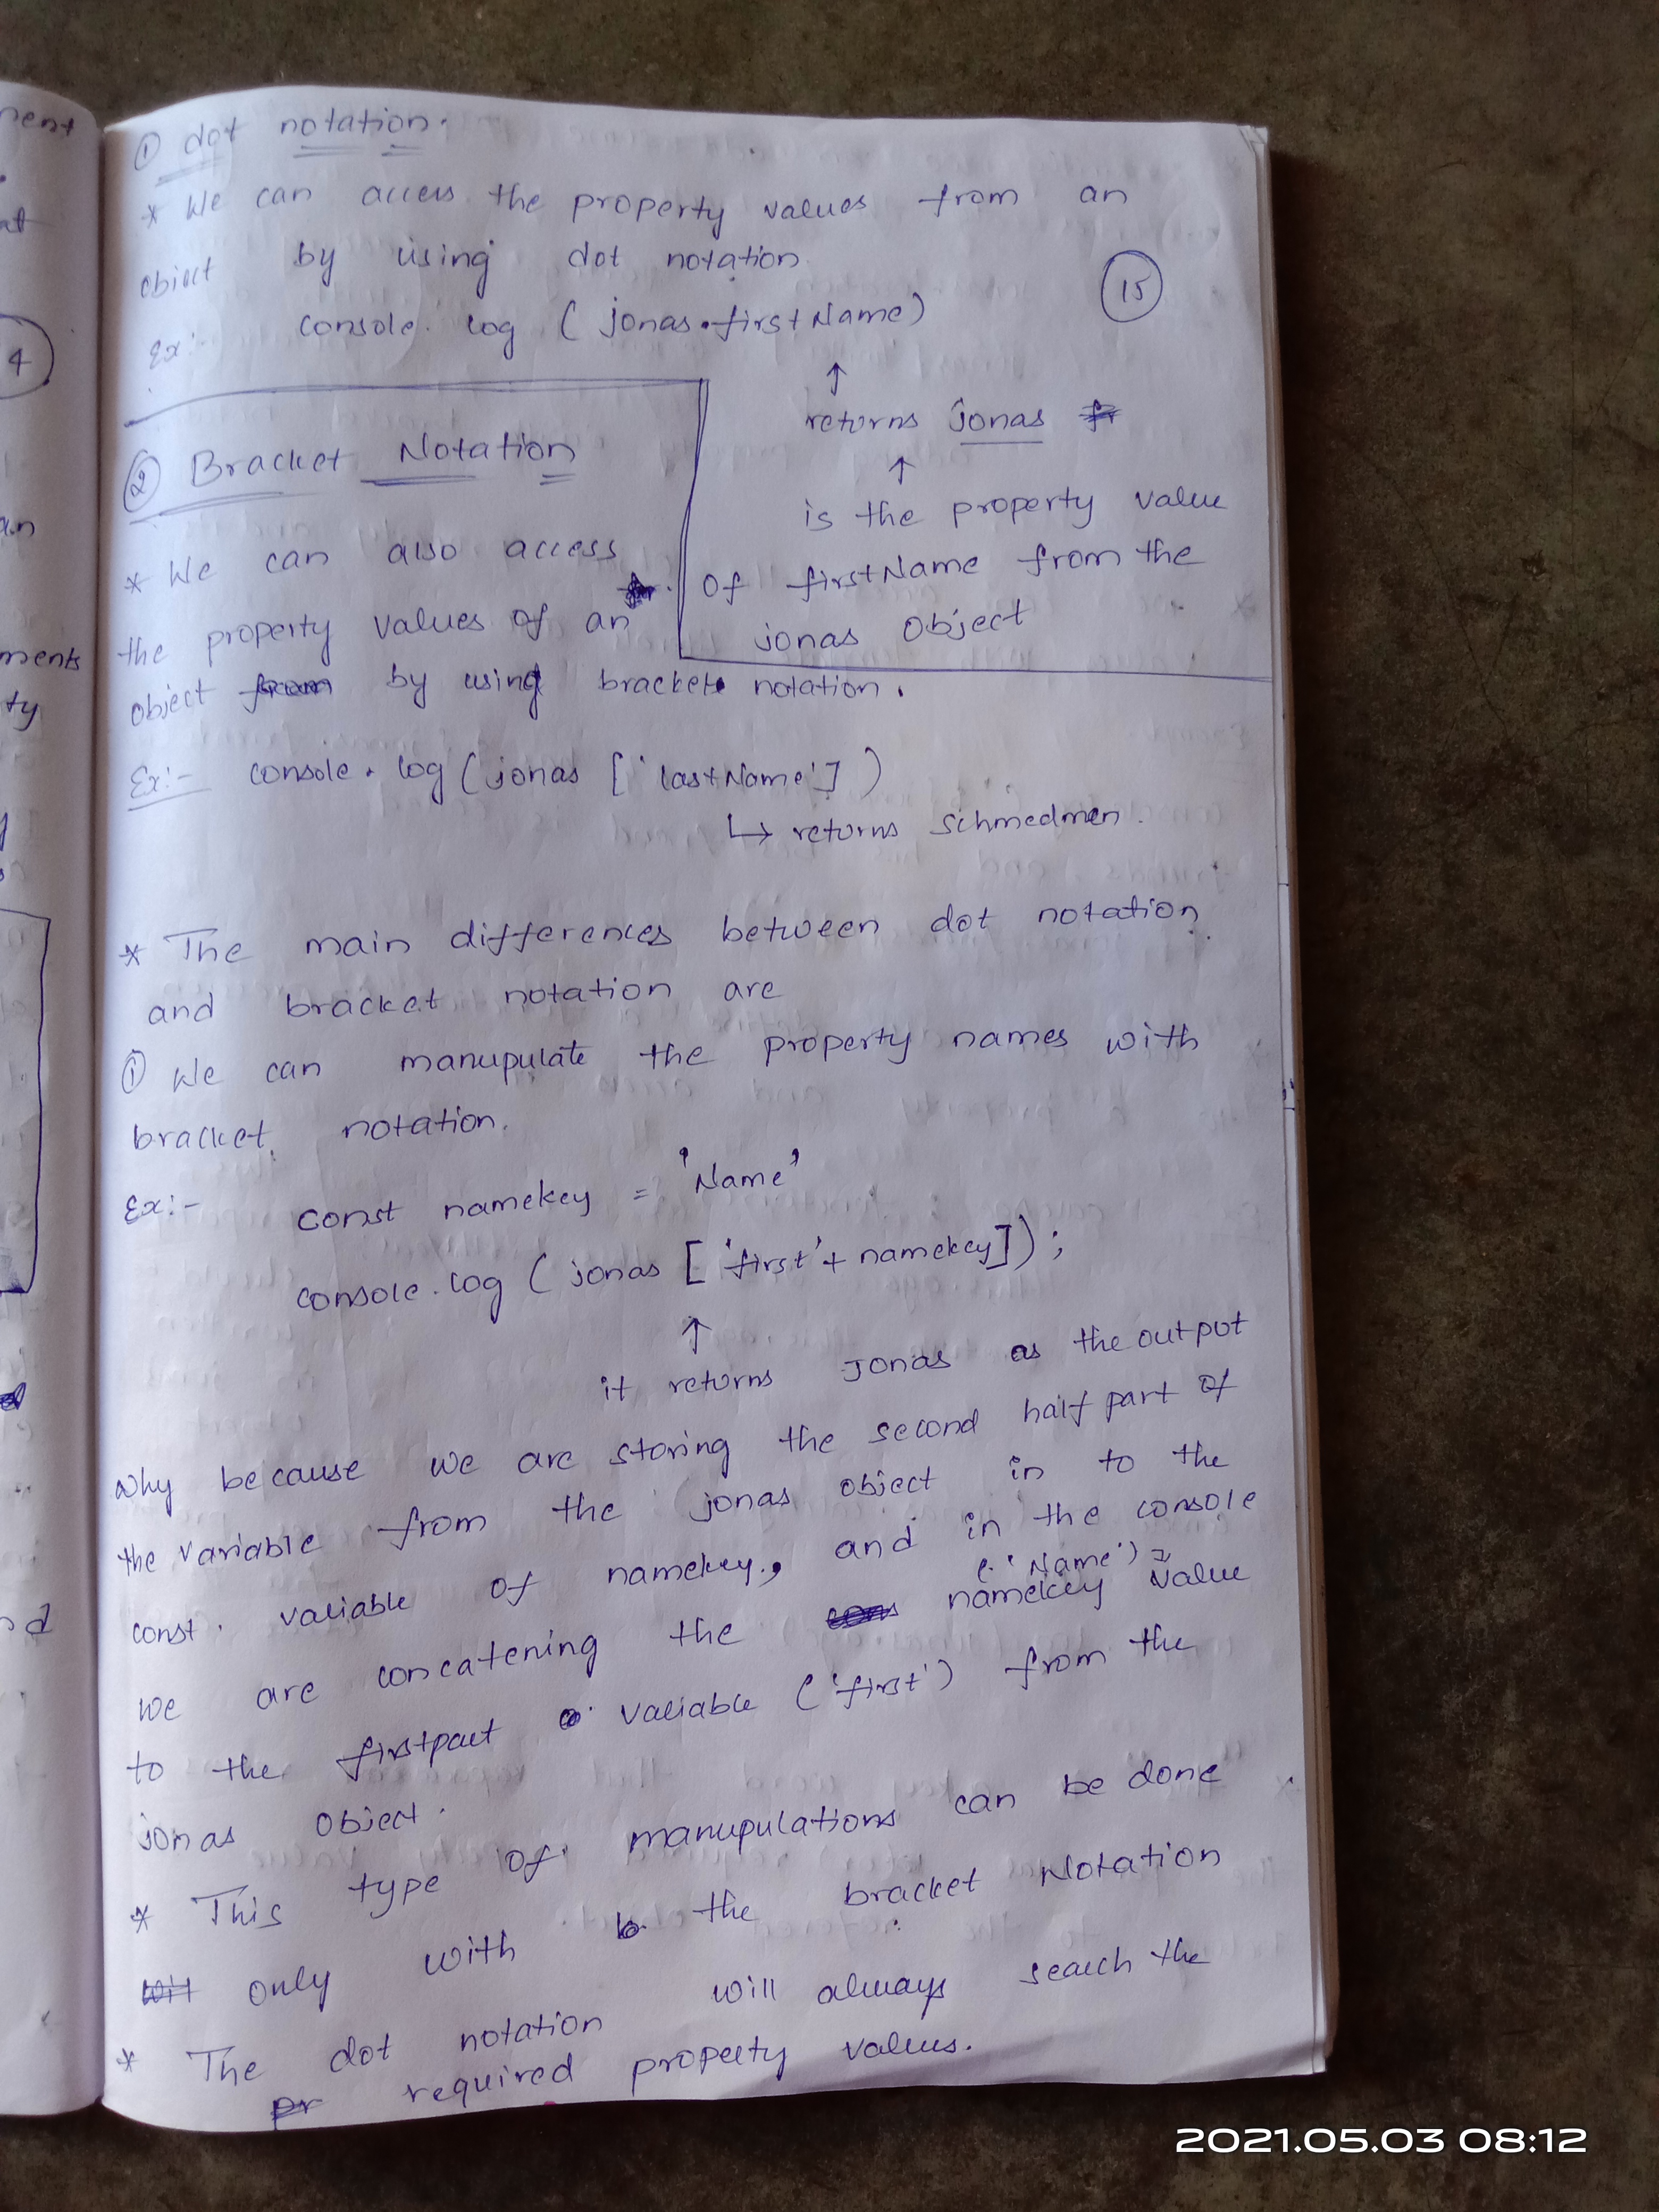 ① dot notation.
* We can access the property values from an
object by using dot notation
15
Ex:- console. log ( jonas.firstName)
↑
returns jonas
↑
is the property value
of firstName from the
jonas Object
② Bracket Notation
* We can also access
the property values of an
object from by using bracket notation.
Ex:- console. log (jonas ['lastName'] )
↳ returns schmedmen.
* The main differences between dot notation
and bracket notation are
① We can manupulate the property names with
bracket notation.
Ex:- const namekey = 'Name'
console.log ( jonas ['first'+ namekey]) ;
↑
it returns Jonas as the output
why because we are storing the second half part of
the variable from the jonas object in to the
const. variable of namekey., and in the console
('Name')
we are concatening the namekey value
to the firstpart variable ('first') from the
jonas object.
* This type of manupulations can be done
only with the bracket Notation
* The dot notation will always search the
pr required property values.
nent
at
4
an
ments
ty
nd
2021.05.03 08:12